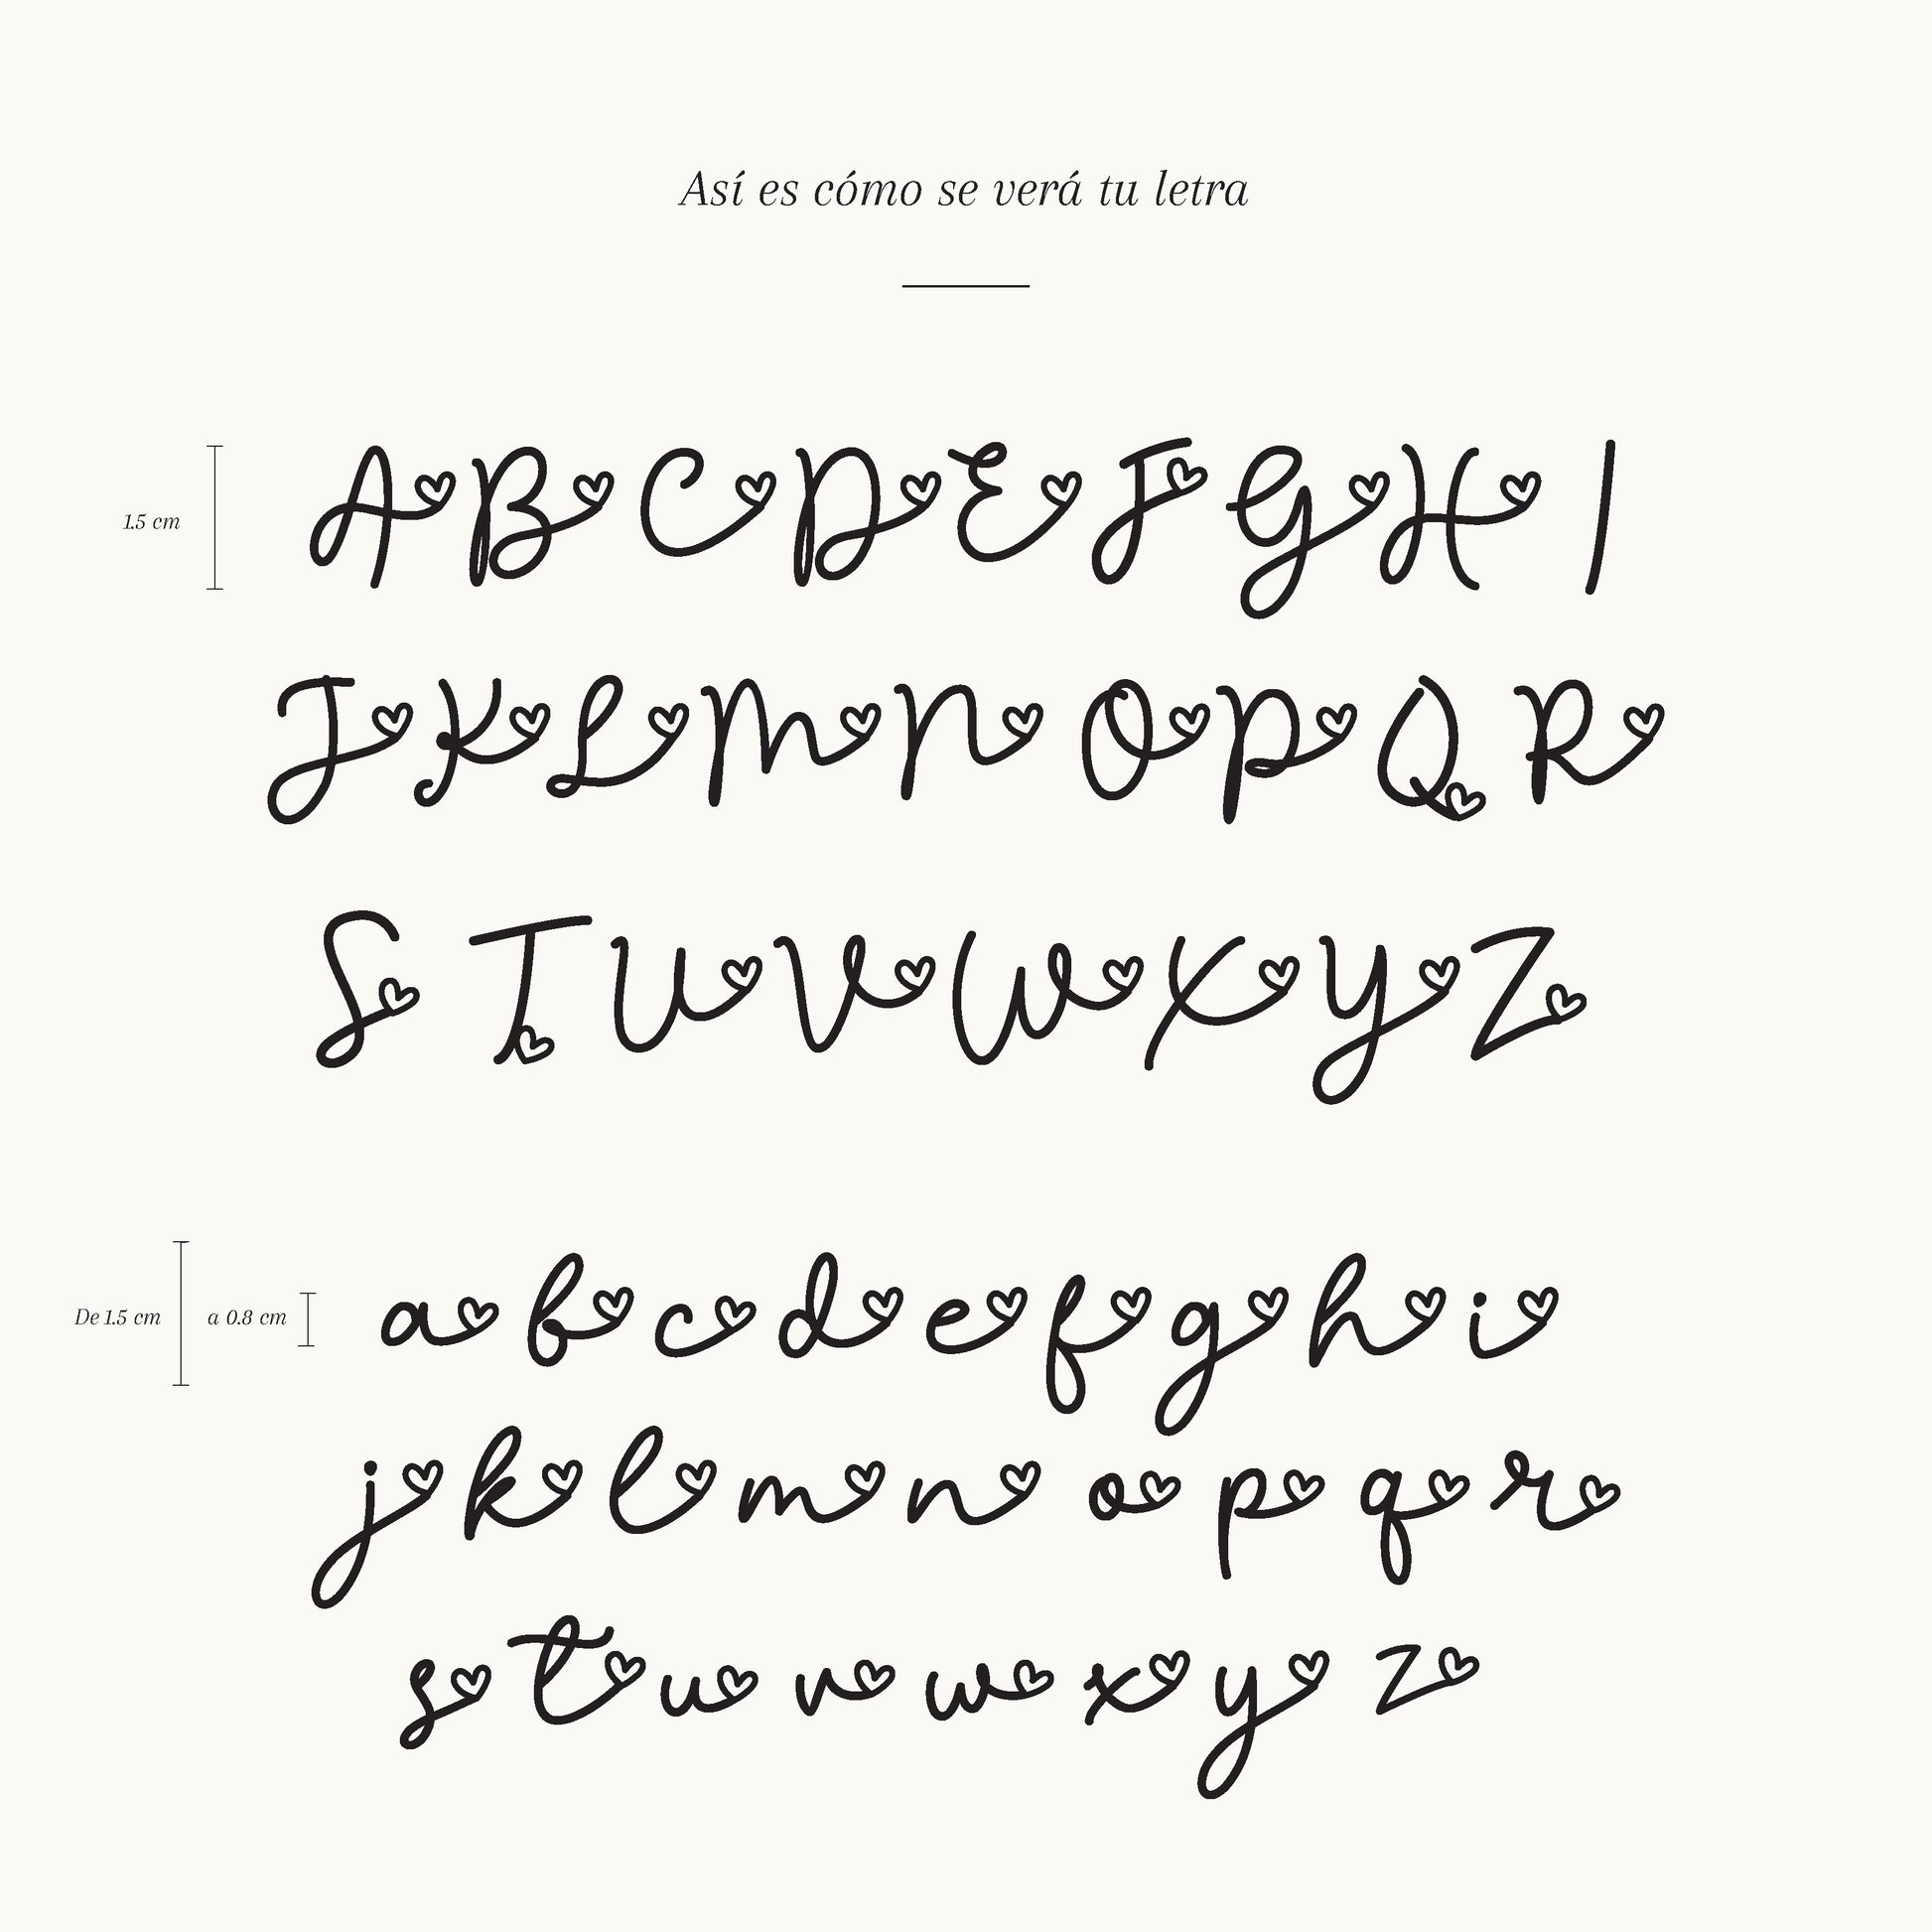 Así es cómo se verá tu letra
1.5 cm
A B C D E F G H I
J K L M N O P Q R
S T U V W X Y Z
De 1.5 cm a 0.8 cm
a b c d e f g h i
j k l m n o p q r
s t u v w x y z